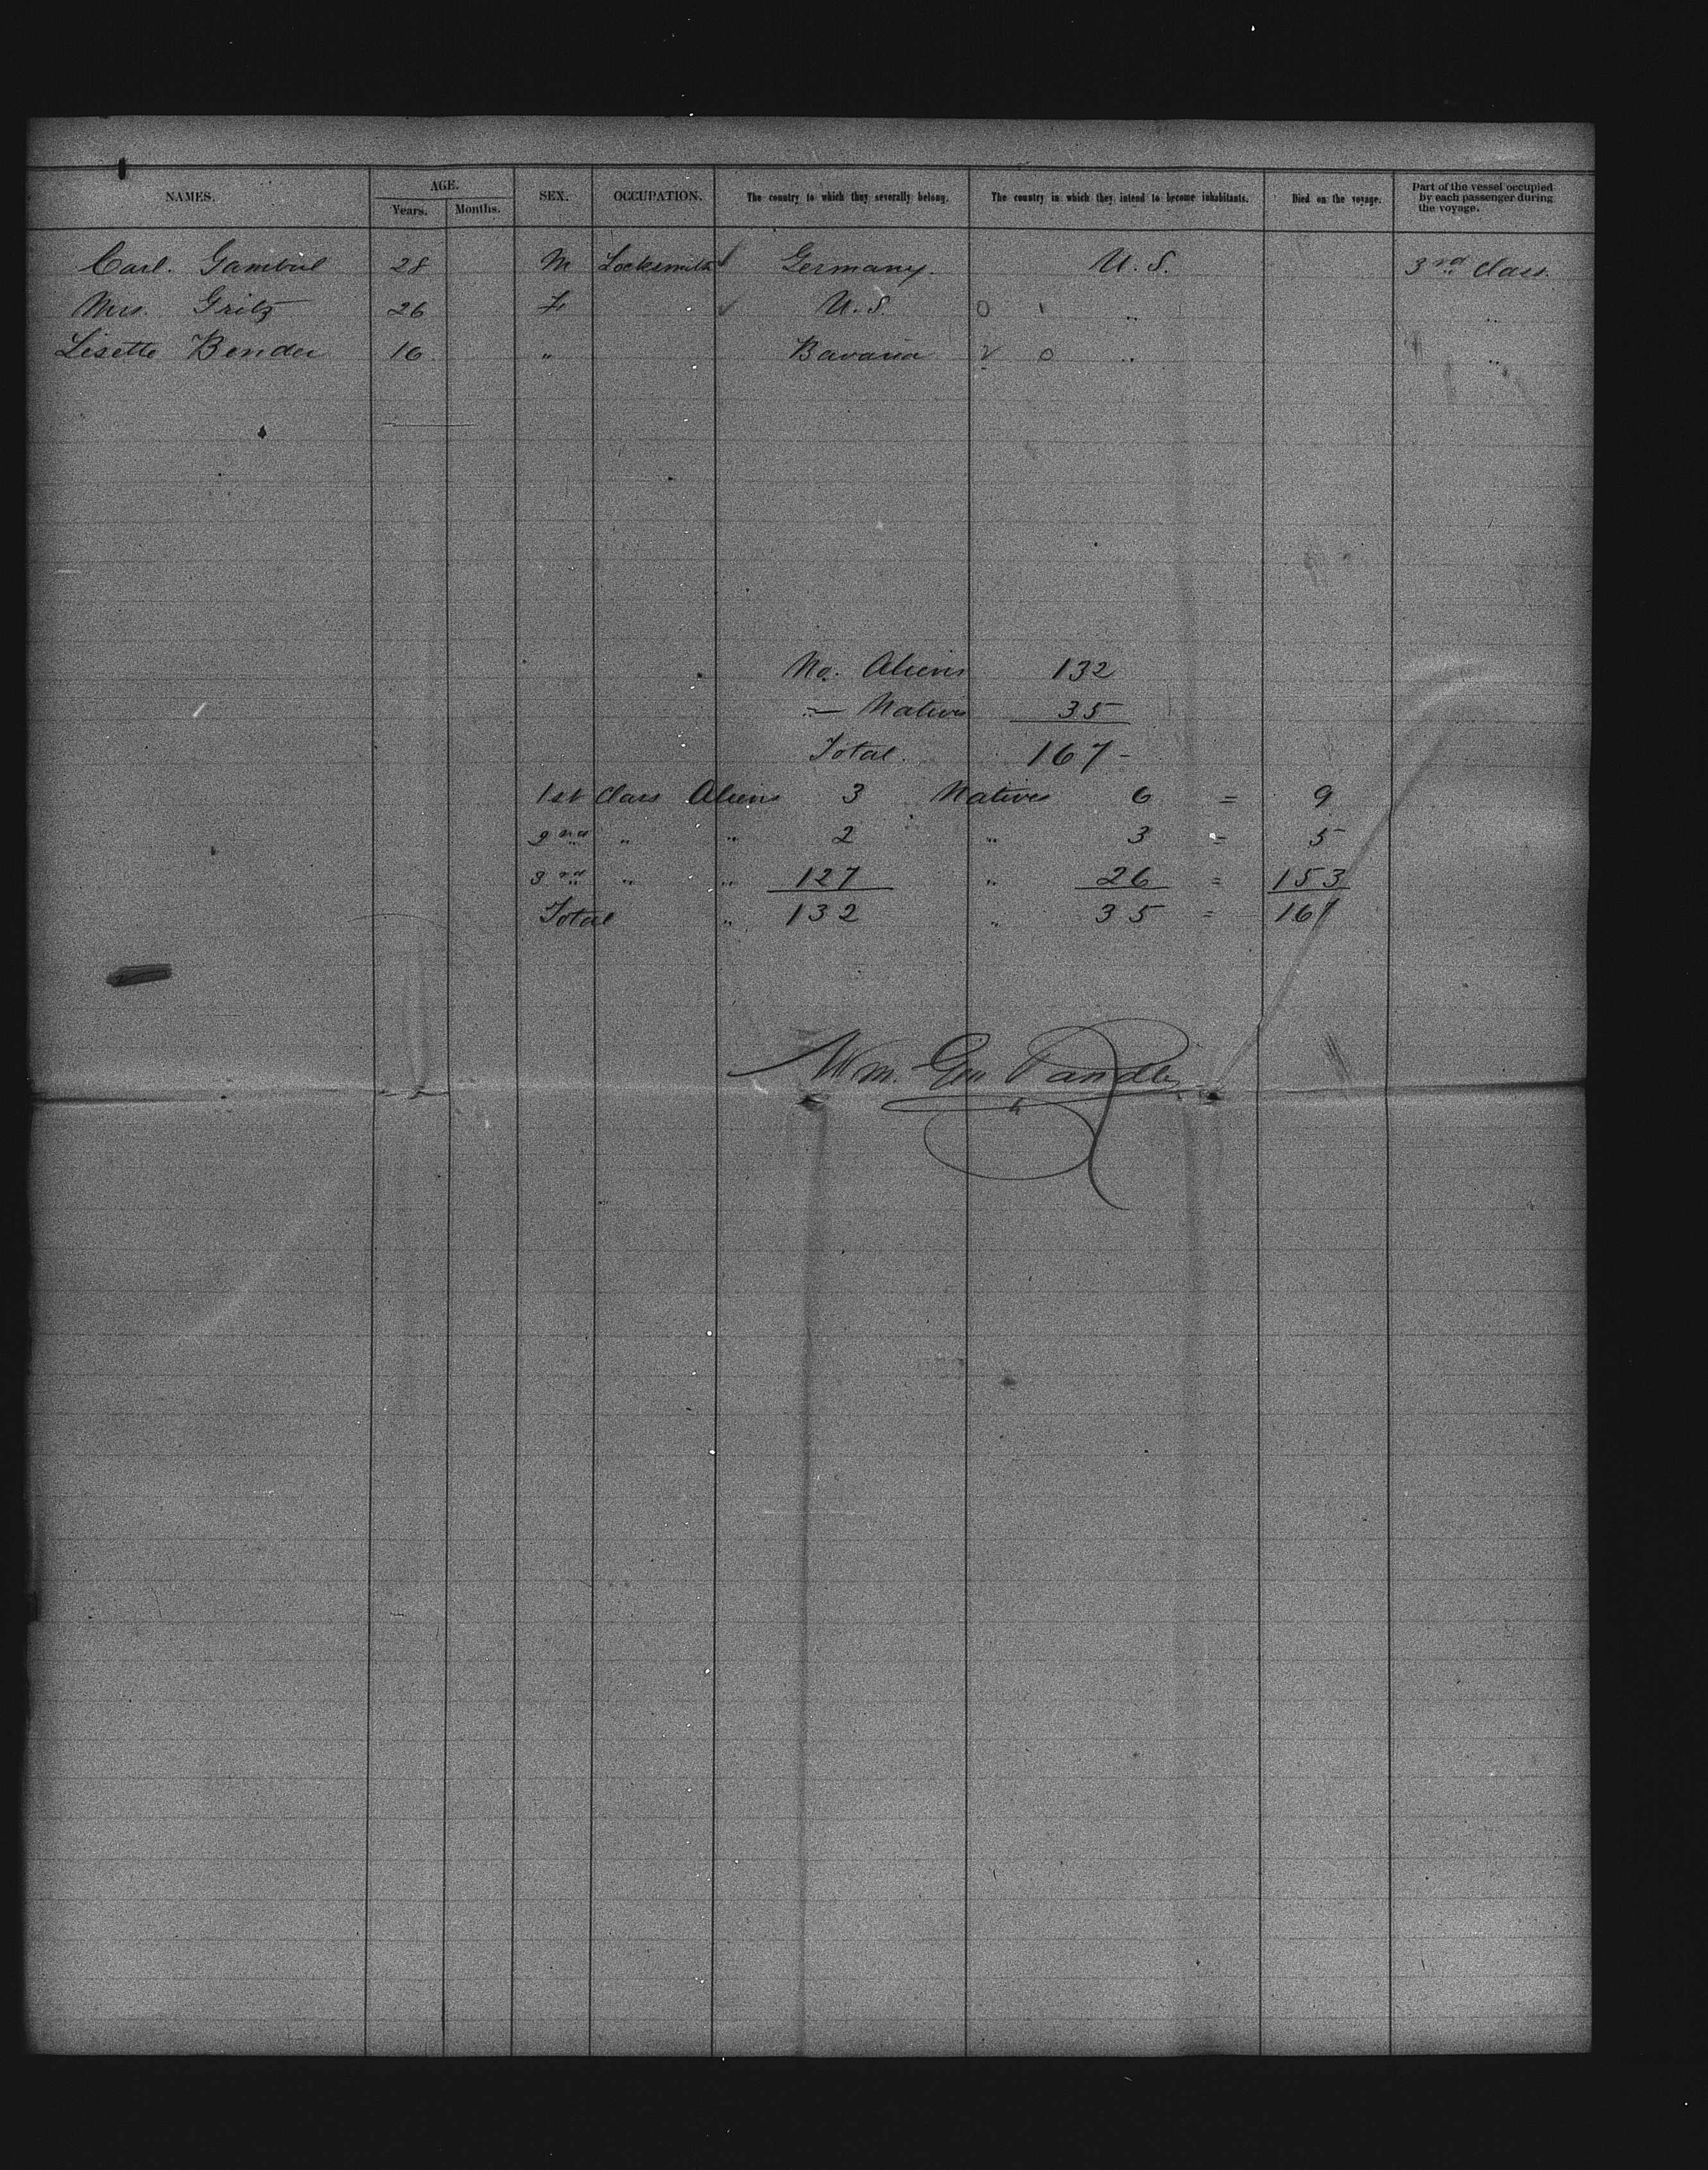 NAMES. AGE. SEX. OCCUPATION. The country to which they severally belong. The country in which they intend to become inhabitants. Died on the voyage. Part of the vessel occupied by each passenger during the voyage.
Years. Months.
Carl. 28 M Locksmith Germany. U. S. 3rd Class.
Mrs. Gritz 26 F U. S. 0 "
Lisette Bender 16 " Bavaria 0 " "
No. Aliens 132
" Natives 35
Total. 167 -
1st Class Aliens 3 Natives 6 = 9
2nd " " 2 " 3 = 5
3rd " " 127 " 26 = 153
Total " 132 " 35 = 167
Wm. Geo